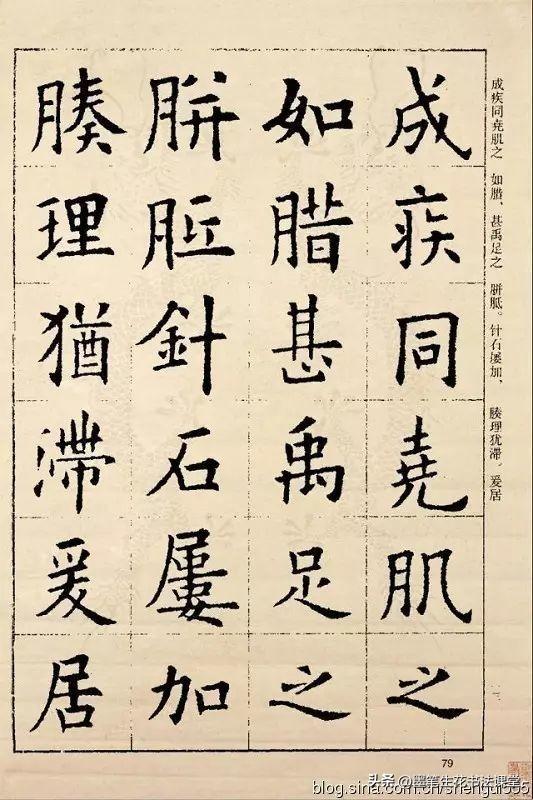 成疾同堯肌之
如腊甚禹足之
胼胝針石屢加
腠理猶滯爰居
成疾同尧肌之 如腊、甚禹足之 胼胝。针石屡加、 腠理犹滞。爰居
79
头条 @墨笔生花书法课堂
blog.sina.com.cn/shengui555